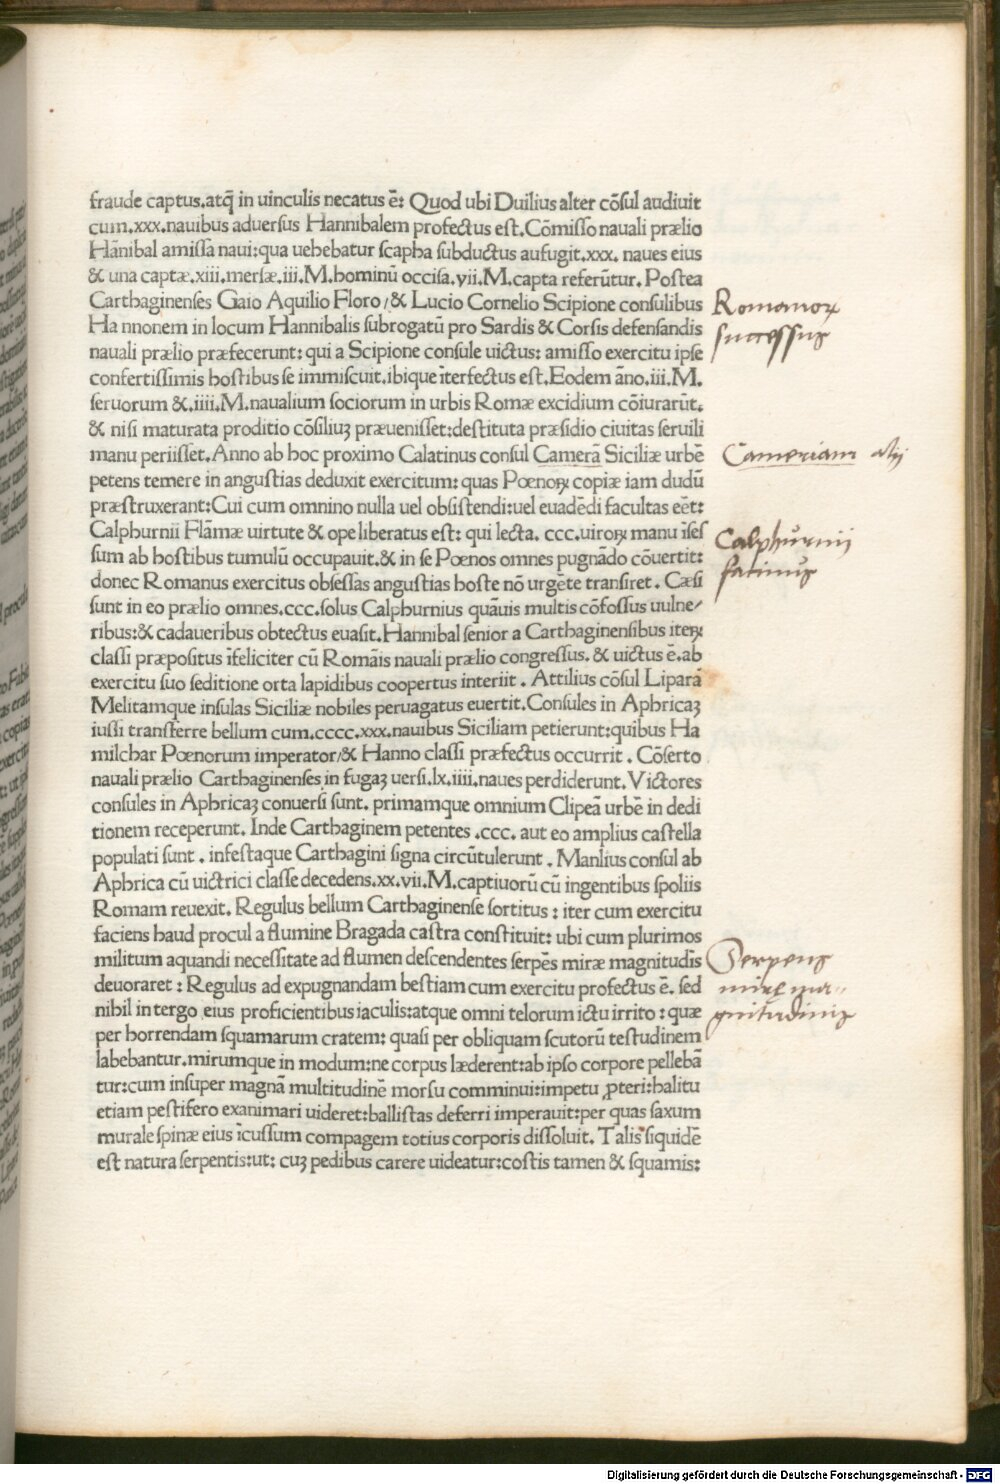 fraude captus.atq̃ in uinculis necatus ẽ: Quod ubi Duilius alter cõsul audiuit
cum.xxx.nauibus aduersus Hannibalem profectus est.Cõmisso nauali prælio
Hãnibal amissa naui:qua uehebatur scapha subductus aufugit.xxx. naues eius
& una captæ.xiii.mersæ.iii.M.hominũ occisa.yii.M.capta referũtur. Postea
Carthaginenses Gaio Aquilio Floro/& Lucio Cornelio Scipione consulibus
Ha nnonem in locum Hannibalis subrogatũ pro Sardis & Corsis defensandis
nauali prælio præfecerunt: qui a Scipione consule uictus: amisso exercitu ipse
confertissimis hostibus se immiscuit.ibique ĩterfectus est.Eodem ãno.iii.M.
seruorum &.iiii.M.naualium sociorum in urbis Romæ excidium cõiurarũt.
& nisi maturata proditio cõsiliuꝫ præuenisset:destituta præsidio ciuitas seruili
manu periisset.Anno ab hoc proximo Calatinus consul Camerã Siciliæ urbẽ
petens temere in angustias deduxit exercitum: quas Pœnoꝝ copiæ iam dudũ
præstruxerant:Cui cum omnino nulla uel obsistendi:uel euadẽdi facultas eẽt:
Calphurnii Flãmæ uirtute & ope liberatus est: qui lecta. ccc.uiroꝝ manu ĩses
sum ab hostibus tumulũ occupauit.& in se Pœnos omnes pugnãdo cõuertit:
donec Romanus exercitus obsessas angustias hoste nõ urgẽte transiret . Cæsi
sunt in eo prælio omnes.ccc.solus Calphurnius quãuis multis cõfossus uulne/
ribus:& cadaueribus obtectus euasit.Hannibal senior a Carthaginensibus iteꝝ
classi præpositus ĩfeliciter cũ Romãis nauali prælio congressus. & uictus ẽ.ab
exercitu suo seditione orta lapidibus coopertus interiit . Attilius cõsul Liparã
Melitamque insulas Siciliæ nobiles peruagatus euertit.Consules in Aphricaꝫ
iussi transferre bellum cum.cccc.xxx.nauibus Siciliam petierunt:quibus Ha
milchar Pœnorum imperator/& Hanno classi præfectus occurrit . Cõserto
nauali prælio Carthaginenses in fugaꝫ uersi.lx.iiii.naues perdiderunt. Victores
consules in Aphricaꝫ conuersi sunt. primamque omnium Clipeã urbẽ in dedi
tionem receperunt. Inde Carthaginem petentes .ccc. aut eo amplius castella
populati sunt . infestaque Carthagini signa circũtulerunt . Manlius consul ab
Aphrica cũ uictrici classe decedens.xx.vii.M.captiuorũ cũ ingentibus spoliis
Romam reuexit. Regulus bellum Carthaginense sortitus : iter cum exercitu
faciens haud procul a flumine Bragada castra constituit: ubi cum plurimos
militum aquandi necessitate ad flumen descendentes serpẽs miræ magnitudĩs
deuoraret : Regulus ad expugnandam bestiam cum exercitu profectus ẽ. sed
nihil in tergo eius proficientibus iaculis:atque omni telorum ictu irrito : quæ
per horrendam squamarum cratem: quasi per obliquam scutorũ testudinem
labebantur.mirumque in modum:ne corpus læderent:ab ipso corpore pellebã
tur:cum insuper magnã multitudinẽ morsu comminui:impetu ꝓteri:halitu
etiam pestifero exanimari uideret:ballistas deferri imperauit:per quas saxum
murale spinæ eius ĩcussum compagem totius corporis dissoluit. Talis siquidẽ
est natura serpentis:ut: cuꝫ pedibus carere uideatur:costis tamen & squamis:
Romanoꝝ
successus
Cameriam alij
Calphurnij
facinus
Serpens
mirę ma-
gnitudinis
Digitalisierung gefördert durch die Deutsche Forschungsgemeinschaft - DFG